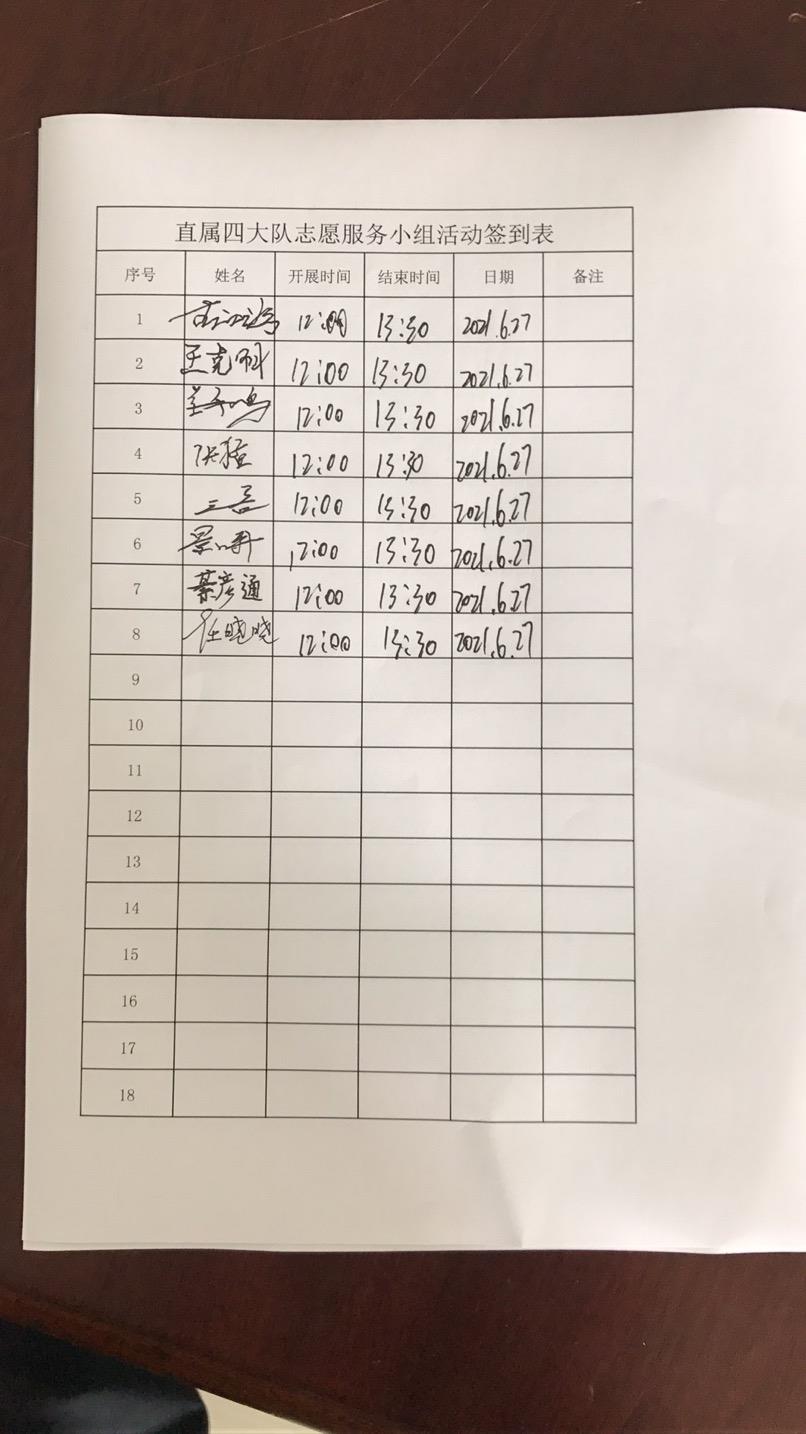 直属四大队志愿服务小组活动签到表
序号 姓名 开展时间 结束时间 日期 备注
1 12:00 13:30 2021.6.27
2 王克 12:00 13:30 2021.6.27
3 12:00 13:30 2021.6.27
4 张 12:00 13:30 2021.6.27
5 12:00 13:30 2021.6.27
6 12:00 13:30 2021.6.27
7 綦彦通 12:00 13:30 2021.6.27
8 任晓晓 12:00 13:30 2021.6.27
9
10
11
12
13
14
15
16
17
18